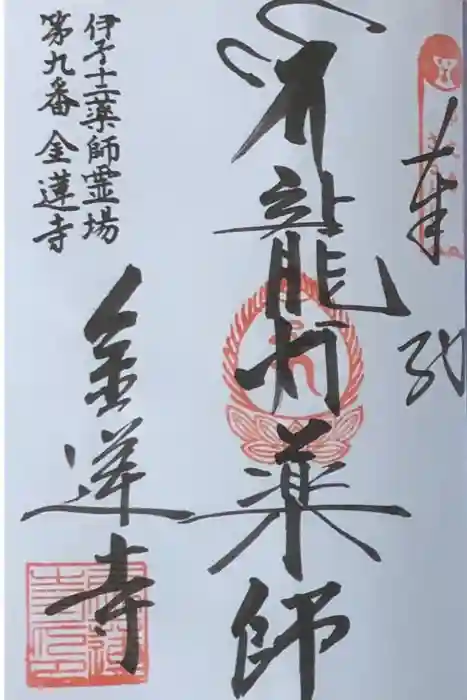 奉
龍灯薬師
伊予十二薬師霊場
第九番 金蓮寺
金蓮寺